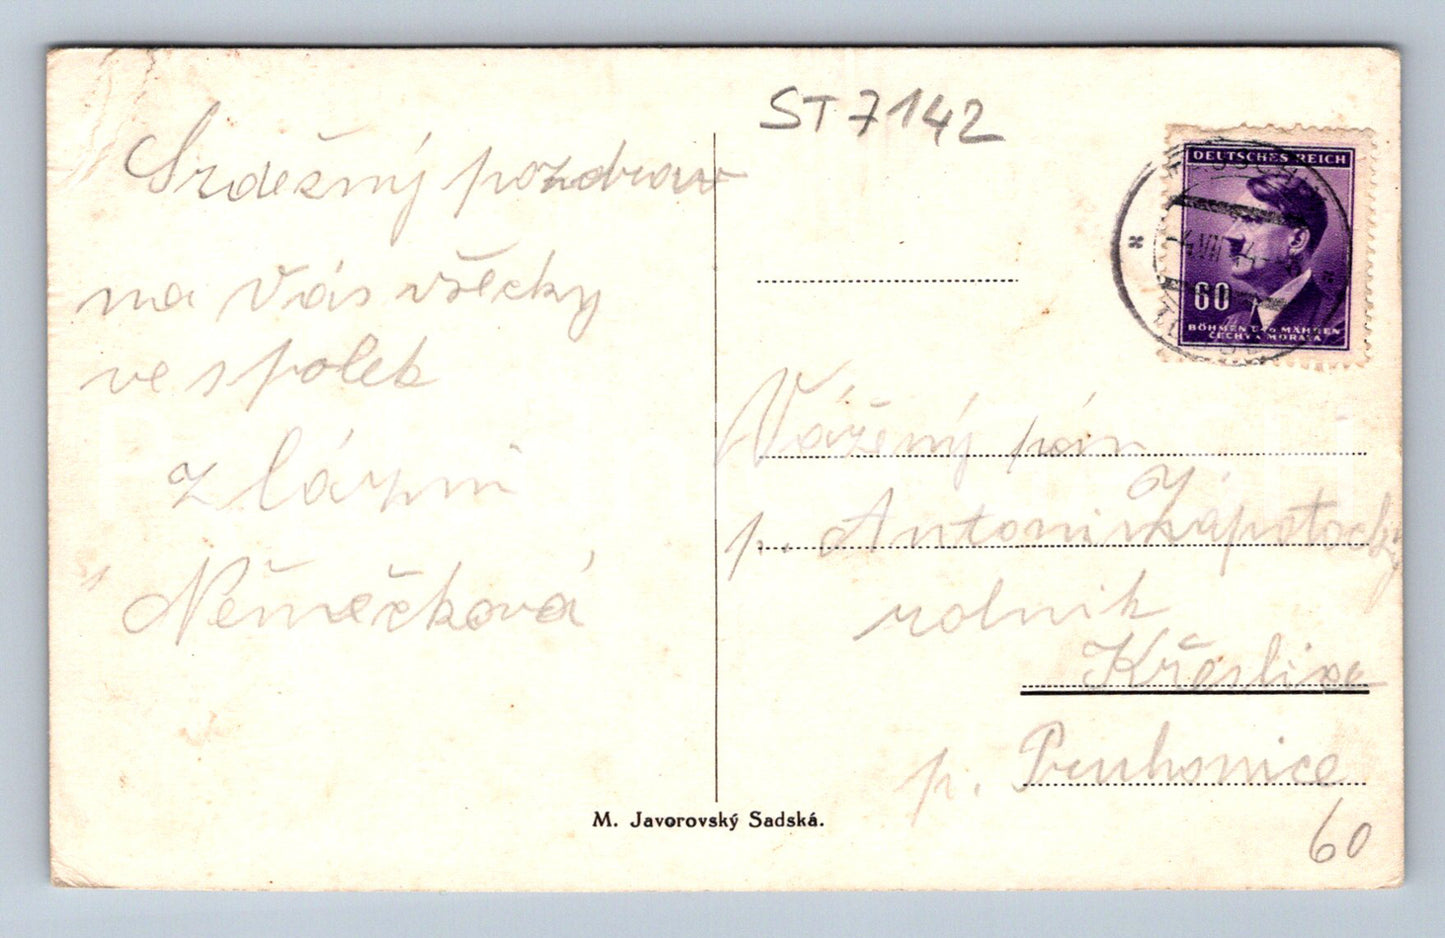 ST 7142
Srdečný pozdrav
na Vás všecky
ve spolek
z lázní
Němečková
DEUTSCHES REICH
60
BÖHMEN UND MÄHREN
ČECHY A MORAVA
Vážený pán
p. Antonín Zápotocký
rolník
Křeslice
p. Pruhonice
M. Javorovský Sadská.
60